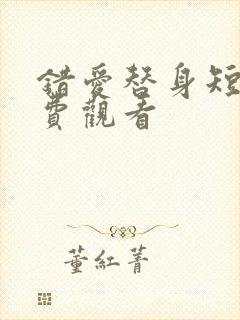 錯愛替身短
費觀看
董紅菁